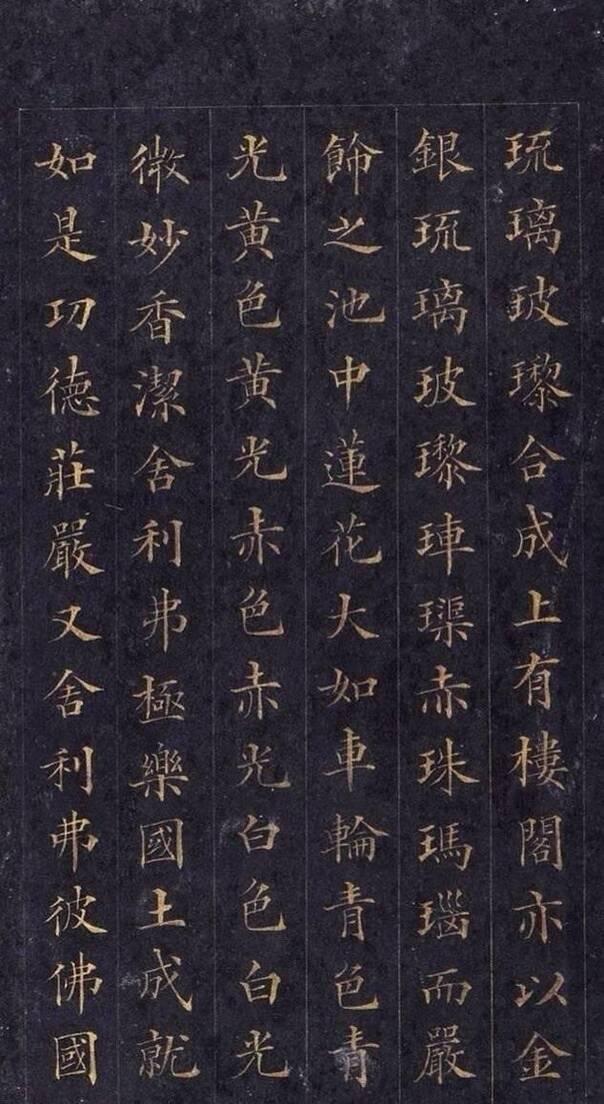 琉璃玻瓈合成上有樓閣亦以金
銀琉璃玻瓈硨璖赤珠瑪瑙而嚴
飾之池中蓮花大如車輪青色青
光黃色黃光赤色赤光白色白光
微妙香潔舍利弗極樂國土成就
如是功德莊嚴又舍利弗彼佛國